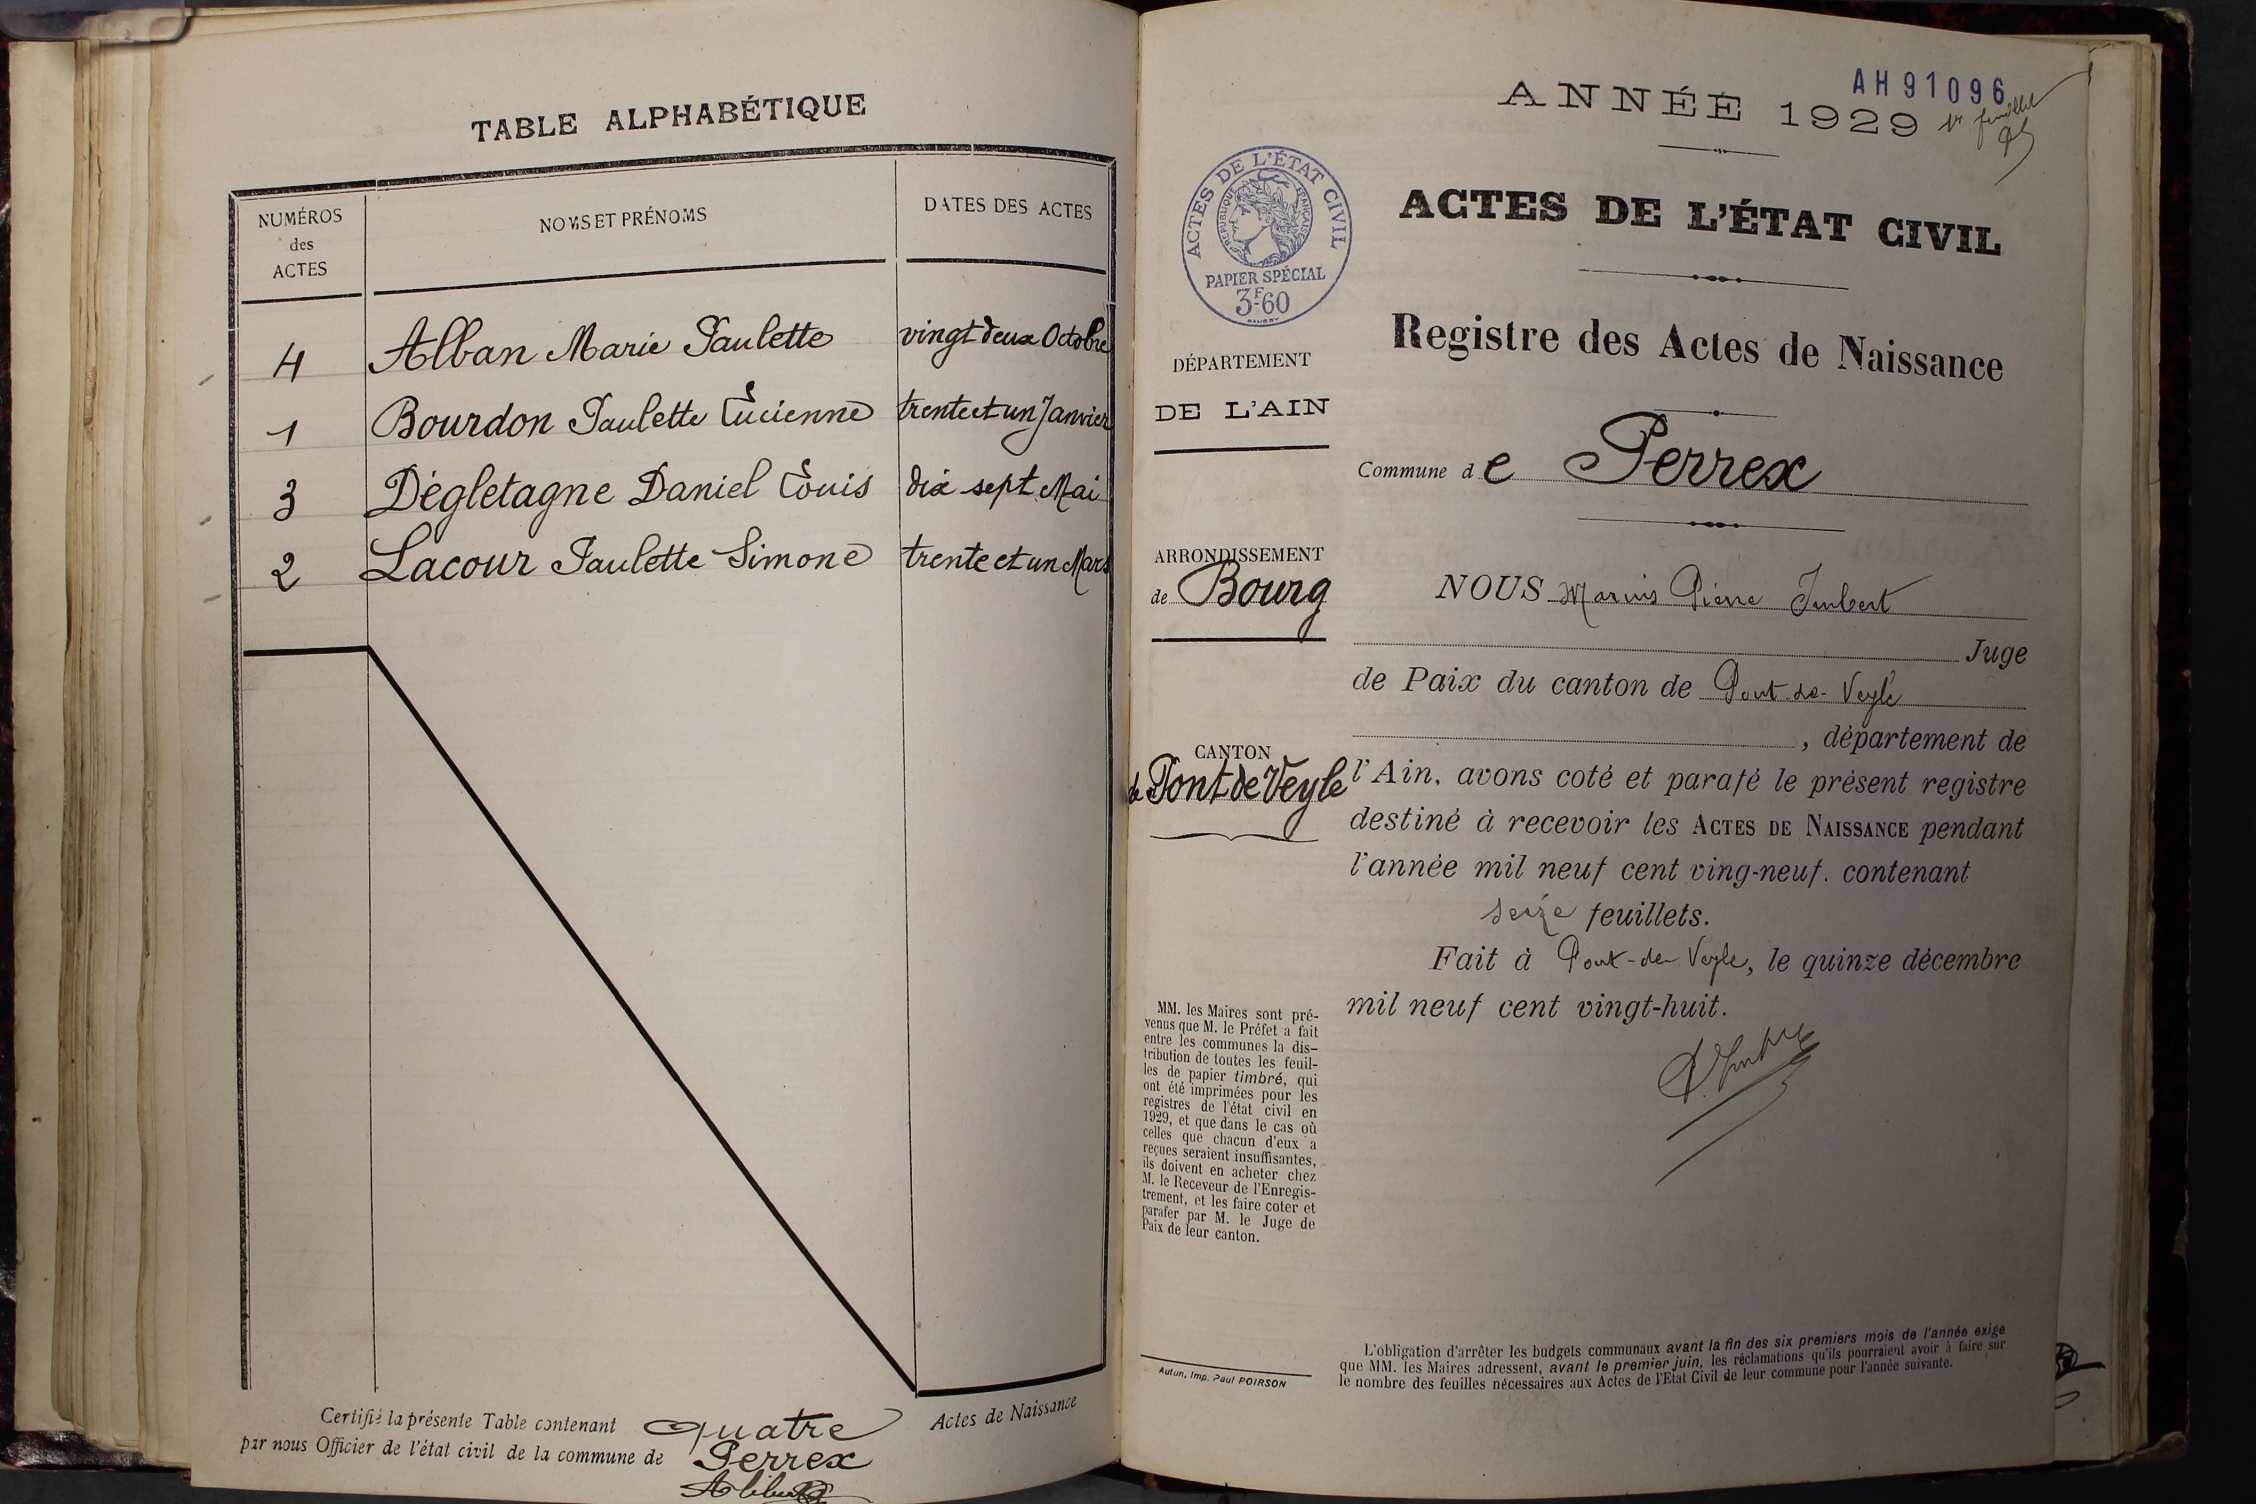 TABLE ALPHABÉTIQUE
NUMÉROS
des
ACTES
NOMS ET PRÉNOMS
DATES DES ACTES
4 Alban Marie Paulette vingt deux Octobre
1 Bourdon Paulette Lucienne trente et un Janvier
3 Dégletagne Daniel Louis dix sept Mai
2 Lacour Paulette Simone trente et un Mars
Certifié la présente Table contenant quatre Actes de Naissance
par nous Officier de l'état civil de la commune de Perrex
AH91096
ANNÉE 1929
1er feuillet
ACTES DE L'ÉTAT CIVIL
RÉPUBLIQUE FRANÇAISE
PAPIER SPÉCIAL
3F60
ACTES DE L'ÉTAT CIVIL
Registre des Actes de Naissance
DÉPARTEMENT
DE L'AIN
Commune de Perrex
ARRONDISSEMENT
de Bourg
CANTON
de Pont de Veyle
NOUS Marius Pierre Imbert
Juge
de Paix du canton de Pont-de-Veyle
, département de
l'Ain, avons coté et parafé le présent registre
destiné à recevoir les ACTES DE NAISSANCE pendant
l'année mil neuf cent ving-neuf. contenant
seize feuillets.
Fait à Pont-de-Veyle, le quinze décembre
mil neuf cent vingt-huit.
MM. les Maires sont pré-
venus que M. le Préfet a fait
entre les communes la dis-
tribution de toutes les feuil-
les de papier timbré, qui
ont été imprimées pour les
registres de l'état civil en
1929, et que dans le cas où
celles que chacun d'eux a
reçues seraient insuffisantes,
ils doivent en acheter chez
M. le Receveur de l'Enregis-
trement, et les faire coter et
parafer par M. le Juge de
Paix de leur canton.
Autun, Imp. Paul POIRSON
L'obligation d'arrêter les budgets communaux avant la fin des six premiers mois de l'année exige
que MM. les Maires adressent, avant le premier juin, les réclamations qu'ils pourraient avoir à faire sur
le nombre des feuilles nécessaires aux Actes de l'Etat Civil de leur commune pour l'année suivante.